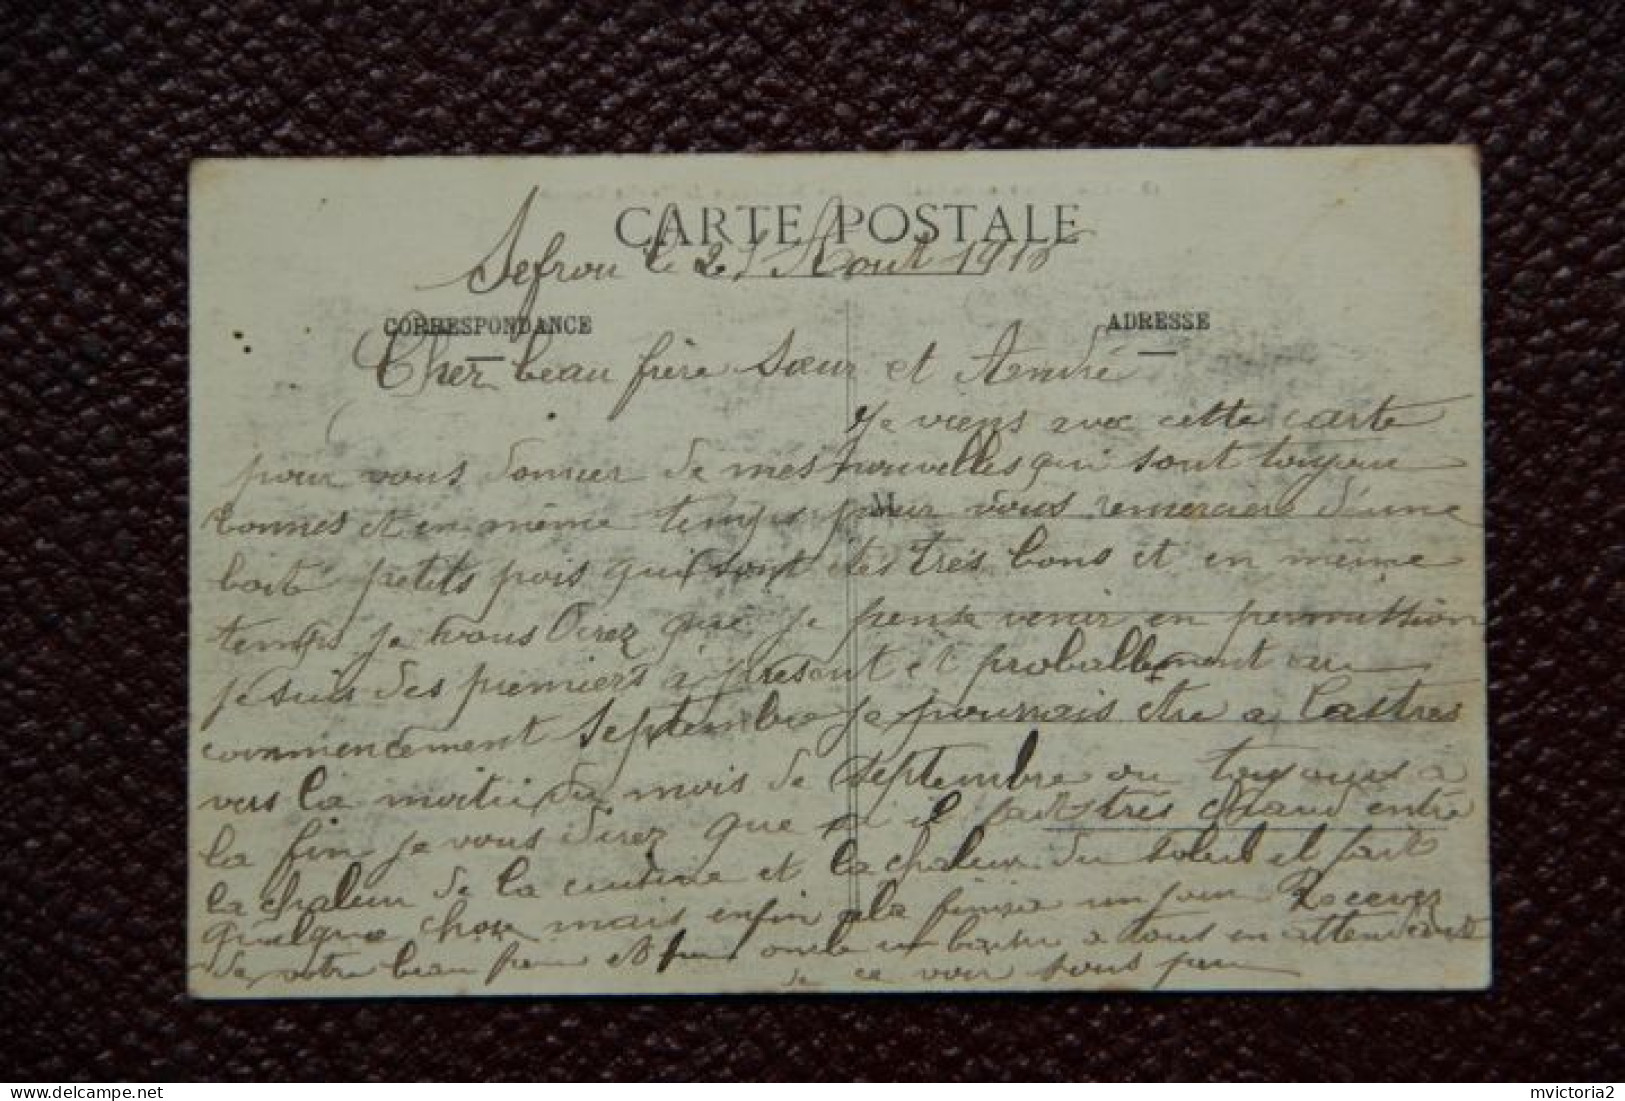 CARTE POSTALE
Sefrou le 21 Aout 1918
CORRESPONDANCE
ADRESSE
Cher beau frère Sœur et André
Je viens avec cette carte
pour vous donner de mes nouvelles qui sont toujour
bonnes et en même temps pour vous remerciere d'une
M
boite petits pois qui sont étés très bons et en même
temps je vous Direz que je pense venir en permission
je suis des premiers à présent et proballement au
commencement Septembre je pourrais etre a Castres
vers la moitié du mois de septembre ou toujours a
la fin je vous direz que si il fait très chaud entre
la chaleur de la cuisine et la chaleur du soleil il fait
quelque chose mais enfin ala finira un jour Recevez
de votre beau frère et oncle un baiser a tous en attendant
de ce voir sous peu
mvictoria2